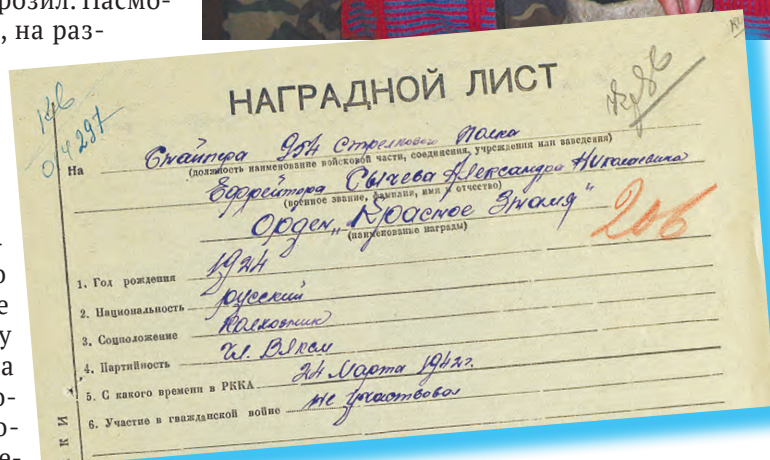 розил. Насмо-
, на раз-
-
о
е
у
а
о-
о-
е-
НАГРАДНОЙ ЛИСТ
Кв
04297
На Снайпера 954 Стрелкового Полка
(должность наименование войсковой части, соединения, учреждения или заведения)
Ефрейтора Сычева Александра Николаевича
(военное звание, фамилия, имя и отчество)
Орден „Красное Знамя"
(наименованье награды)
206
1. Год рождения 1924
2. Национальность русский
3. Соцположение Колхозник
4. Партийность Чл. ВЛКСМ
5. С какого времени в РККА 24 Марта 1942г.
6. Участие в гражданской войне не участвовал
КИ